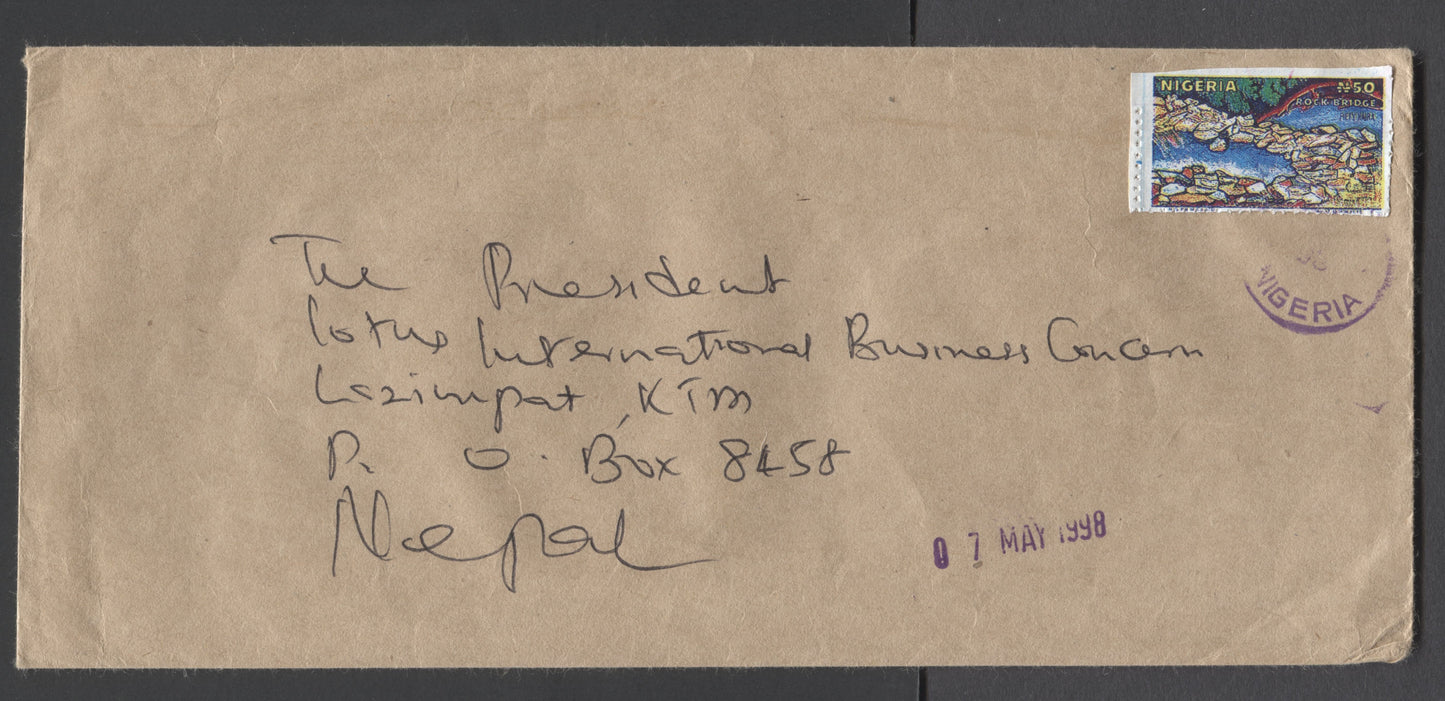 NIGERIA ₦50
ROCK BRIDGE
FIFTY NAIRA
98
NIGERIA
The President
Lotus International Business Concern
Lazimpat, KTM
P. O. Box 8458
Nepal
07 MAY 1998